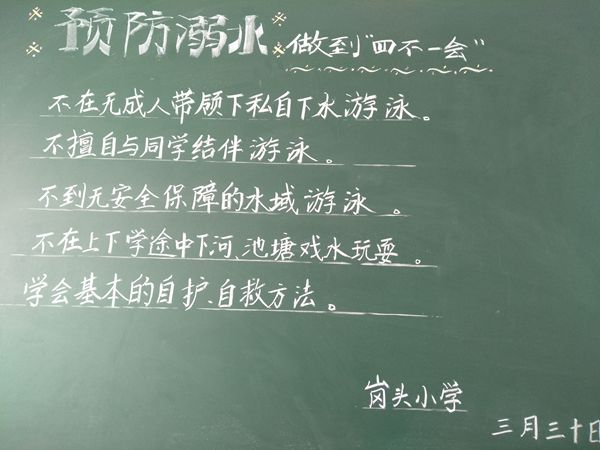 预防溺水 做到"四不一会"
不在无成人带领下私自下水游泳。
不擅自与同学结伴游泳。
不到无安全保障的水域游泳。
不在上下学途中下河、池塘戏水玩耍。
学会基本的自护、自救方法。
岗头小学
三月三十日